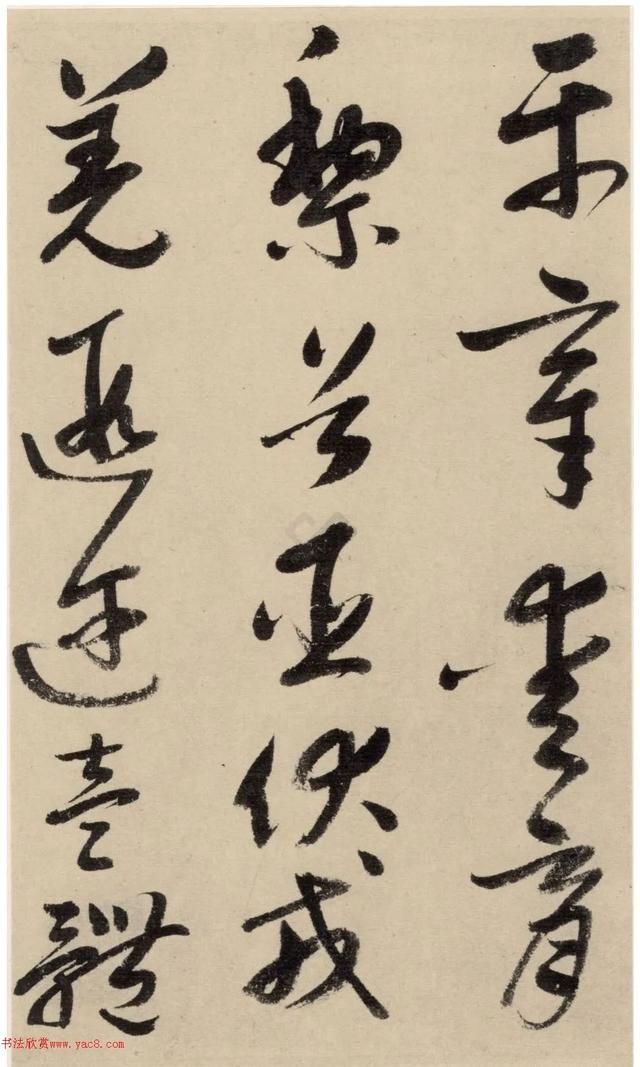 平章愛育
黎首臣伏戎
羌遐迩壹體
书法欣赏www.yac8.com